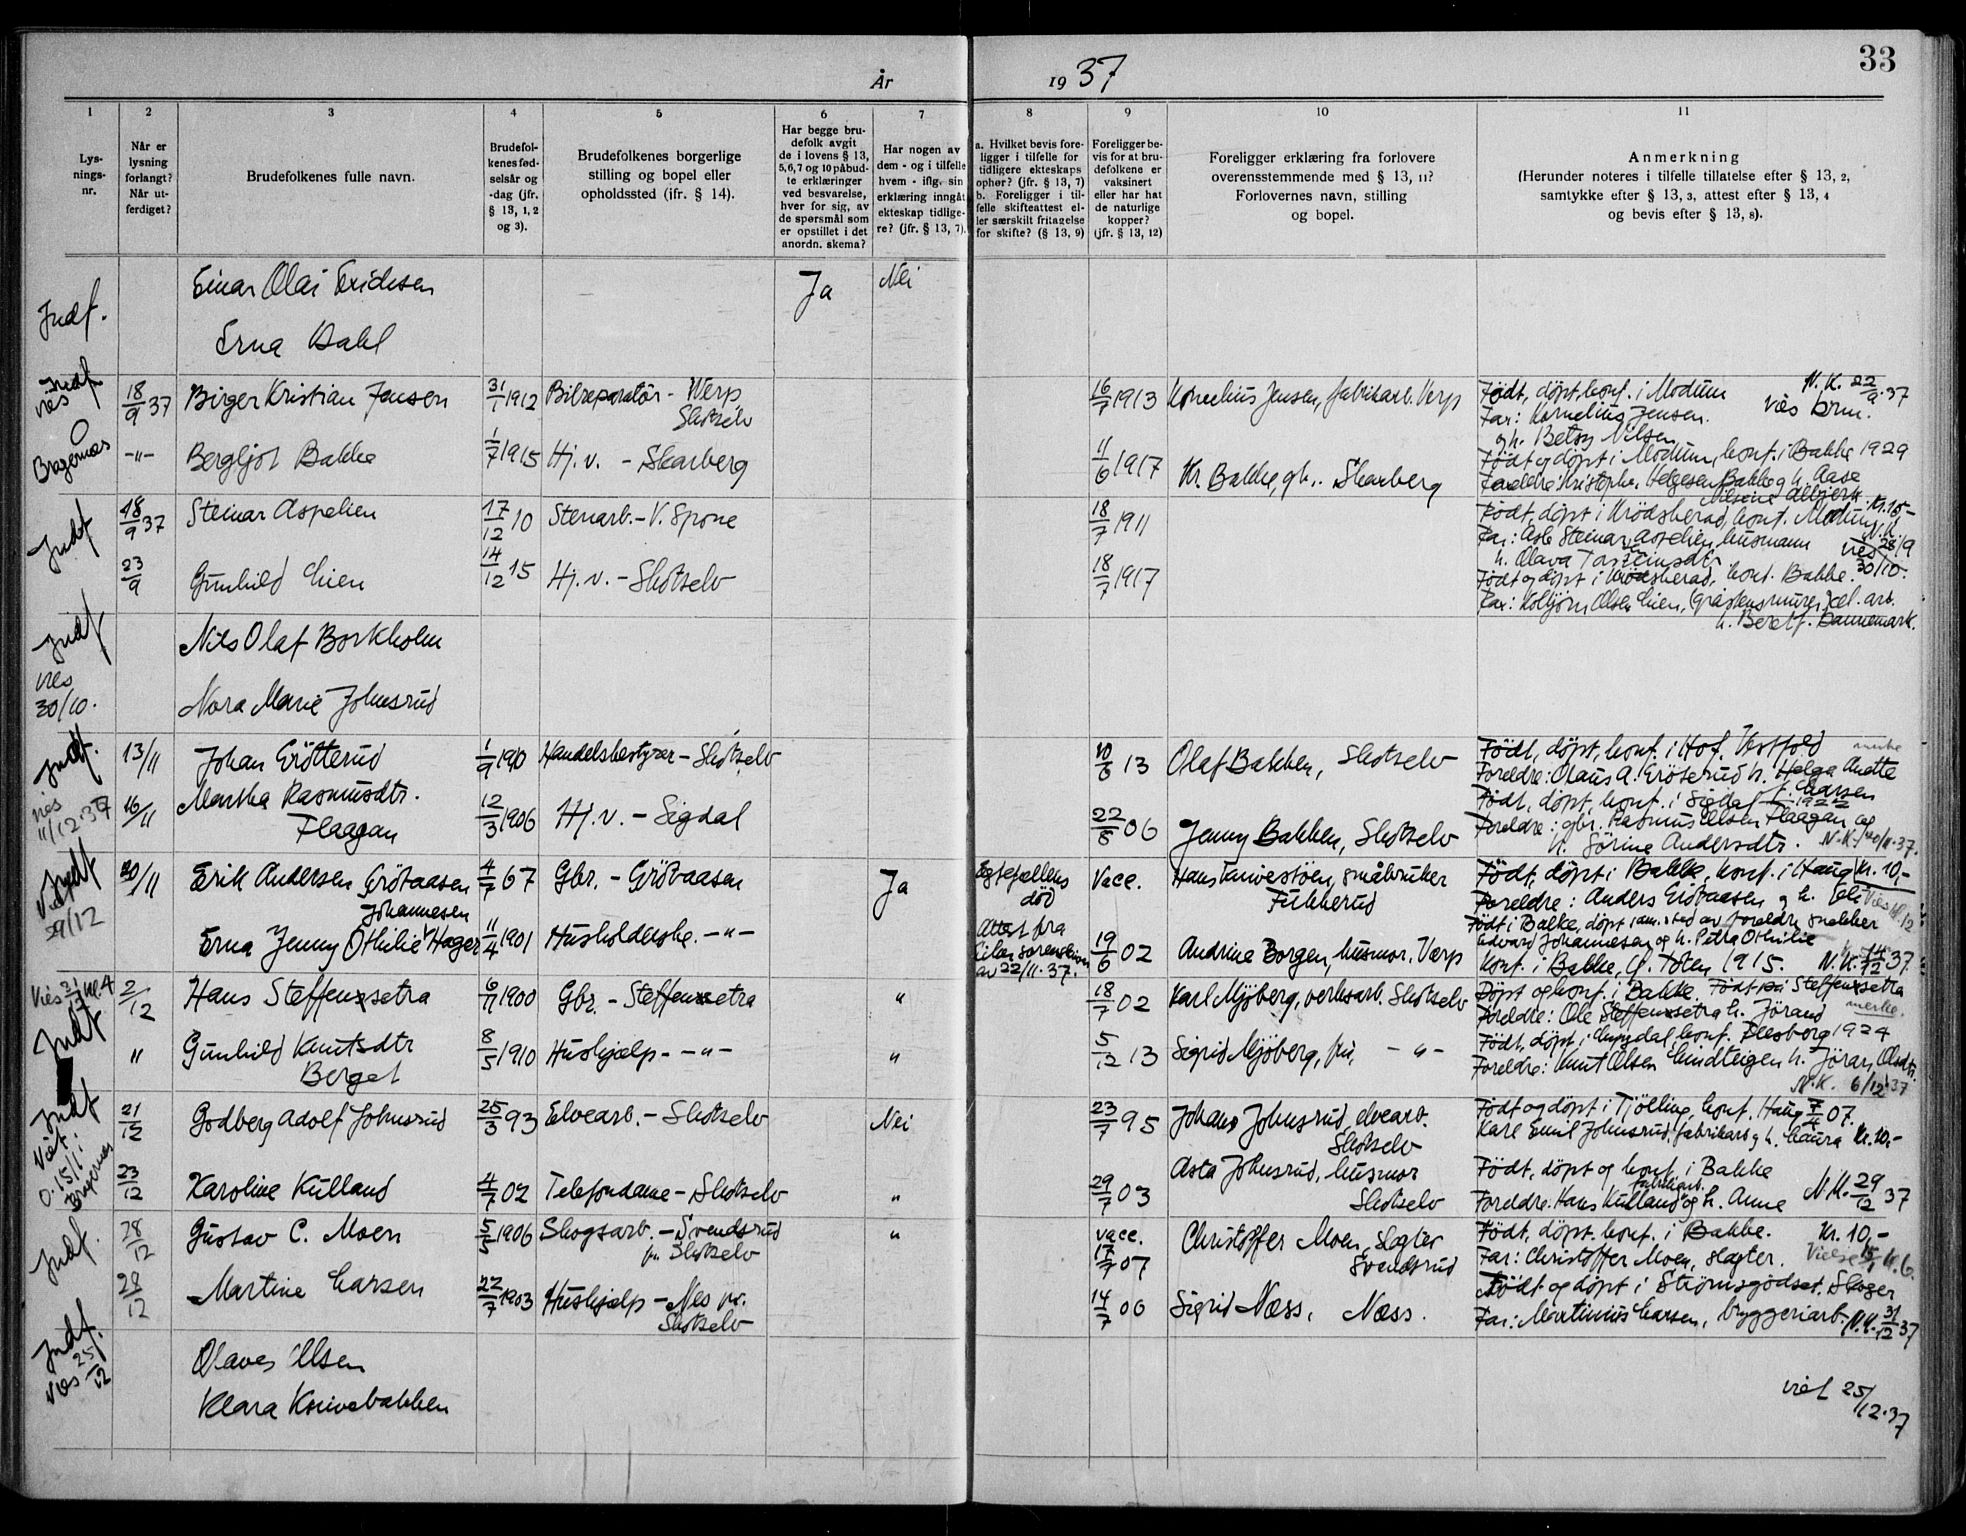 33
År 1937
1 2 3 4 5 6 7 8 9 10 11
Lys-
nings-
nr.
Når er
lysning
forlangt?
Når ut-
ferdiget?
Brudefolkenes fulle navn.
Brudefol-
kenes fød-
selsår og
-dag (jfr.
§ 13, 1, 2
og 3).
Brudefolkenes borgerlige
stilling og bopel eller
opholdssted (ifr. § 14).
Har begge bru-
defolk avgit
de i lovens § 13,
5,6,7 og 10 påbud-
te erklæringer
ved besvarelse,
hver for sig, av
de spørsmål som
er opstillet i det
anordn. skema?
Har nogen av
dem - og i tilfelle
hvem - iflg. sin
erklæring inngåt
ekteskap tidlige-
re? (jfr. § 13, 7).
a. Hvilket bevis fore-
ligger i tilfelle for
tidligere ekteskaps
ophør? (jfr. § 13, 7)
b. Foreligger i til-
felle skifteattest el-
ler særskilt fritagelse
for skifte? (§ 13, 9)
Foreligger be-
vis for at bru-
defolkene er
vaksinert
eller har hat
de naturlige
kopper?
(jfr. § 13, 12)
Foreligger erklæring fra forlovere
overensstemmende med § 13, 11?
Forlovernes navn, stilling
og bopel.
Anmerkning
(Herunder noteres i tilfelle tillatelse efter § 13, 2,
samtykke efter § 13, 3, attest efter § 13, 4
og bevis efter § 13, 8).
Indf. Einar Olai Eriksen Ja Nei
Erna Dahl
Indf
vies
Bragernes
18/9 37 Birger Kristian Jensen 31/1 1912 Bilreparatör - Verp
Skotselv
16/7 1913 Kornelius Jensen, fabrikarb. Verp
Födt, döpt, konf. i Modum N.K. 22/9.37
Far: Kornelius Jensen. vies brm.
og h. Betsy Nilsen
-"- Bergljot Bakke 1/7 1915 Hj.v. - Skarberg
11/6 1917 Kr. Bakke, gb., Skarberg
Födt og döpt i Modum, konf. i Bakke 1929
Foreldre Kristopher Helgesen Bakke og h. Aase
Indf 18/9 37 Steinar Aspelien 17/12 10 Stenarb. - V. Spone
18/7 1911
Födt, döpt i Krödsherad, konf. Modum Kr. 15-
Far: Asle Steinar Aspelien husmann
h. Olava Torsteinsdtr
vies 30/10.
23/9 Gunhild Lien 14/12 15 Hj.v. - Skotselv
18/7 1917
Födt og döpt i Krödsherad, konf. Bakke.
Far: Kolbjörn Olsen Lien, (gråstensmurer) el. arb.
h. Beret f. Dannemark.
Indf
vies
30/10.
Nils Olaf Borkholm
Nora Marie Johnsrud
Indf.
vies
11/12.37
13/11 Johan Grötterud 1/9 1910 Handelsbestyrer - Skotselv
10/6 13 Olaf Bakken, Skotselv
Födt, döpt, konf. i Hof. Vestfold
Foreldre: Olaus A. Gröterud h. Helga Anette
f. Larsen
16/11 Martha Rasmusdtr.
Flaagan
12/3 1906 Hj.v. - Sigdal
22/8 06 Jenny Bakken, Skotselv
Födt, döpt, konf. i Sigdal 1922
Foreldre: gbr. Rasmus Olsen Flaagan og
h. Jörine Andersdtr. N.K. 20/11.37.
Indf
29/12
20/11 Erik Andersen Grötaasen 4/7 67 Gbr. - Grötaasen Ja
Egtefellens
död
Vacc. Hans Tanvestöen, småbruker
Fukkerud
Födt, döpt i Bakke, konf. i Haug Kr. 10,-
Foreldre: Anders Grötaasen og h. Eli
Johannesen
Erna Jenny Othilie Hager 11/4 1901 Husholderske. -"-
Attest fra
Eiker sorenskriveri
av 22/11.37.
19/6 02 Andrine Borgen, husmor. Verp
Födt i Bakke, döpt sam. sted av foreldre snekker
Edvard Johannesen og h. Petra Othilie
Konf. i Bakke, Ö. Toten 1915. N.K. 14/12 37.
Vies 21/12 kl. 4
Indf
2/12 Hans Steffensetra 6/11 1900 Gbr. - Steffensetra "
18/7 02 Karl Mjöberg, verksarb. Skotselv
Döpt og konf. i Bakke. Födt på Steffensetra
Foreldre: Ole Steffensetra h. Jörand
" Gunhild Knutsdtr
Berget
8/5 1910 Hushjælp - -"- "
5/12 13 Sigrid Mjöberg, fru, -"-
Födt, döpt i Numedal, konf. Flesberg 1924
Foreldre: Knut Olsen Lindteigen h. Jöran Olsdtr.
N.K. 6/12 37
Indf
Viet
15/1 i
Bragernes
21/12 Godberg Adolf Johnsrud 25/3 93 Elvearb. - Skotselv Nei
23/7 95 Johans Johnsrud, elvearb.
Skotselv
Födt og döpt i Tjölling, konf. Haug 7/4 07.
Karl Emil Johnsrud, fabrikarb og h. Laura Kr. 10,-
23/12 Karoline Kulland 4/7 02 Telefondame - Skotselv "
29/7 03 Asta Johnsrud, husmor
Skotselv
Födt, döpt og konf. i Bakke
fabrikarb.
Foreldre: Hans Kulland og h. Anne N.K. 29/12 37
Indf.
28/12 Gustav C. Moen 5/5 1906 Skogsarb. - Svendsrud
pr. Skotselv "
vacc.
17/7 07 Christoffer Moen, slagter
Svendsrud
Födt, döpt. konf. i Bakke. Kr. 10,-
Far: Christoffer Moen, slagter.
28/12 Martine Larsen 22/7 1903 Hushjælp - Nes pr.
Skotselv
14/7 06 Sigrid Næss, Næss.
Födt og döpt i Strömsgodset. Skoger
Far: Martinius Larsen, bryggeriarb. N.K. 31/12 37
Indf.
vies 25/12
Olaves Olsen
Klara Knivebakken
viet 25/12.37